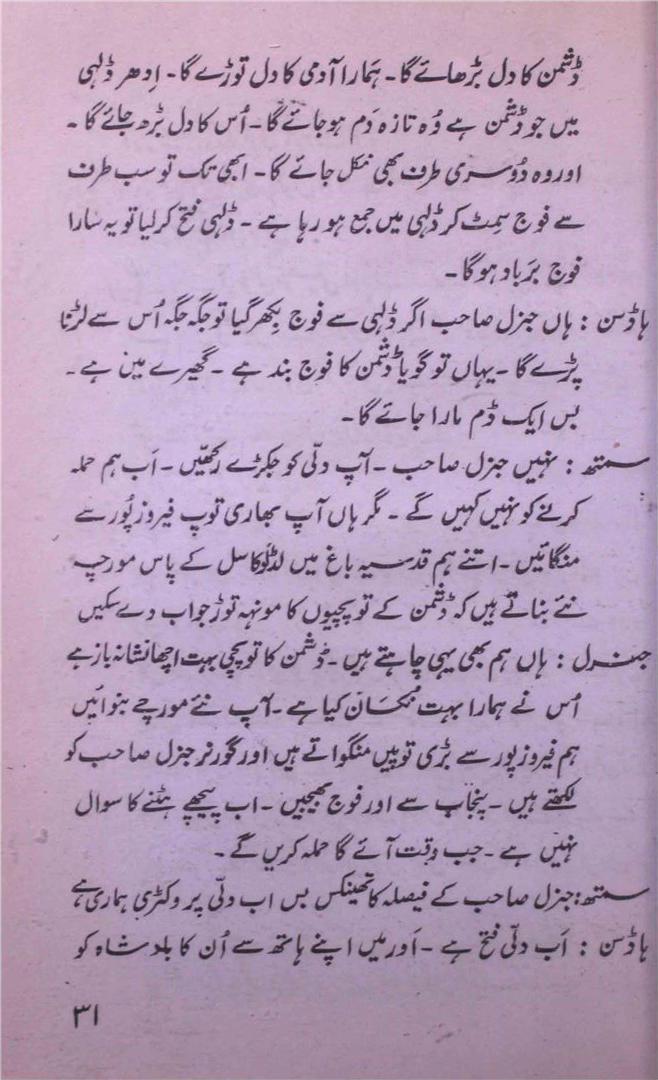 ڈشمن کا دل بڑھائے گا۔ ہمارا آدمی کا دل توڑے گا۔ اِدھر ڈلہی
میں جو ڈشمن ہے وُہ تازہ دَم ہو جائے گا۔ اُس کا دل بڑھ جائے گا۔
اور وہ دُوسری طرف بھی نکل جائے گا۔ ابھی تک تو سب طرف
سے فوج سِمٹ کر ڈلہی میں جمع ہو رہا ہے۔ ڈلہی فتح کر لیا تو یہ سارا
فوج بَرباد ہو گا۔
ہاڈسن : ہاں جنرل صاحب اگر ڈلہی سے فوج بِکھر گیا تو جگہ جگہ اُس سے لڑنا
پڑے گا۔ یہاں تو گویا ڈشمن کا فوج بند ہے۔ گھیرے میں ہے۔
بس ایک ڈم مارا جائے گا۔
سمتھ : نہیں جنرل صاحب۔ آپ دلّی کو جکڑے رکھیں۔ اَب ہم حملہ
کرنے کو نہیں کہیں گے۔ مگر ہاں آپ بھاری توپ فیروز پُور سے
منگائیں۔ اتنے ہم قدسیہ باغ میں لڈلوکاسل کے پاس مورچہ
نئے بناتے ہیں کہ ڈشمن کے توپچیوں کا مونہہ توڑ جواب دے سکیں
جنرل : ہاں ہم بھی یہی چاہتے ہیں۔ دُشمن کا توپچی بہت اچھا نشانہ باز ہے
اُس نے ہمارا بہت نُکسان کیا ہے۔ آپ نئے مورچے بنوائیں
ہم فیروز پور سے بڑی توپیں منگواتے ہیں اور گورنر جنرل صاحب کو
لکھتے ہیں۔ پنجاب سے اور فوج بھیجیں۔ اب پیچھے ہٹنے کا سوال
نہیں ہے۔ جب وقت آئے گا حملہ کریں گے۔
سمتھ : جنرل صاحب کے فیصلہ کا تھینکس بس اب دلّی پر وکٹری ہماری ہے
ہاڈسن : اَب دلّی فتح ہے۔ اَور میں اپنے ہاتھ سے اُن کا بادشاہ کو
۳۱